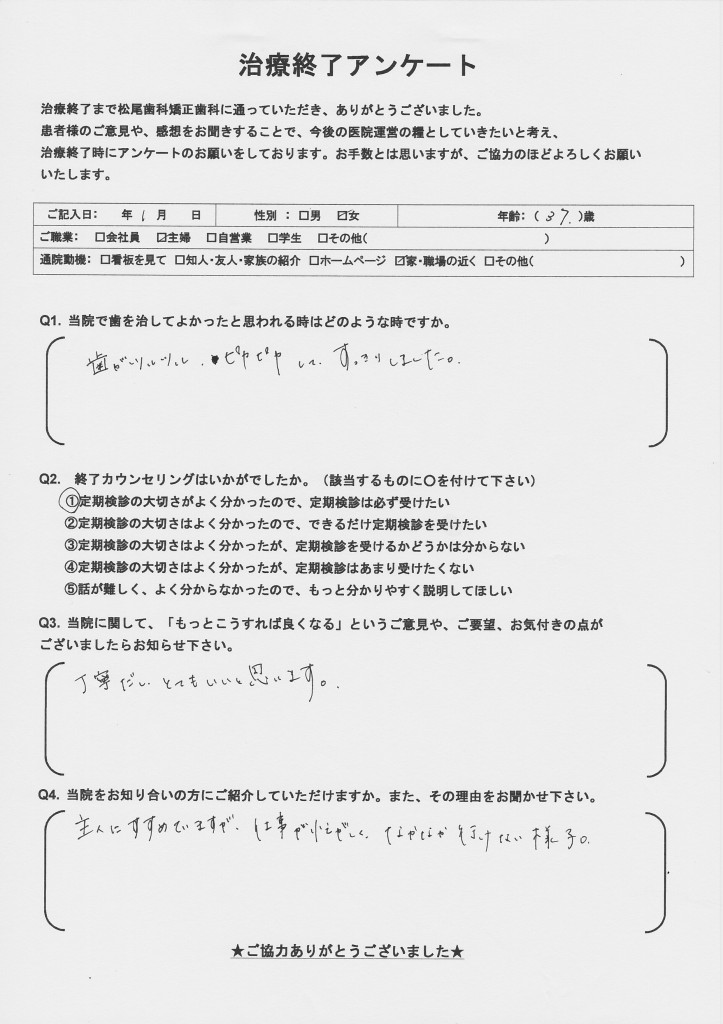 治療終了アンケート
治療終了まで松尾歯科矯正歯科に通っていただき、ありがとうございました。
患者様のご意見や、感想をお聞きすることで、今後の医院運営の糧としていきたいと考え、
治療終了時にアンケートのお願いをしております。お手数とは思いますが、ご協力のほどよろしくお願い
いたします。
ご記入日: 年 1 月 日 性別 : □男 ☑女 年齢:( 37. )歳
ご職業: □会社員 ☑主婦 □自営業 □学生 □その他( )
通院動機: □看板を見て □知人・友人・家族の紹介 □ホームページ ☑家・職場の近く □その他( )
Q1. 当院で歯を治してよかったと思われる時はどのような時ですか。
歯がツルツル、ピカピカして、すっきりしました。
Q2. 終了カウンセリングはいかがでしたか。（該当するものに〇を付けて下さい）
①定期検診の大切さがよく分かったので、定期検診は必ず受けたい
②定期検診の大切さはよく分かったので、できるだけ定期検診を受けたい
③定期検診の大切さはよく分かったが、定期検診を受けるかどうかは分からない
④定期検診の大切さはよく分かったが、定期検診はあまり受けたくない
⑤話が難しく、よく分からなかったので、もっと分かりやすく説明してほしい
Q3. 当院に関して、「もっとこうすれば良くなる」というご意見や、ご要望、お気付きの点が
ございましたらお知らせ下さい。
丁寧だし、とてもいいと思います。
Q4. 当院をお知り合いの方にご紹介していただけますか。また、その理由をお聞かせ下さい。
主人にすすめていますが、仕事が忙しく、なかなか行けない様子。
★ご協力ありがとうございました★